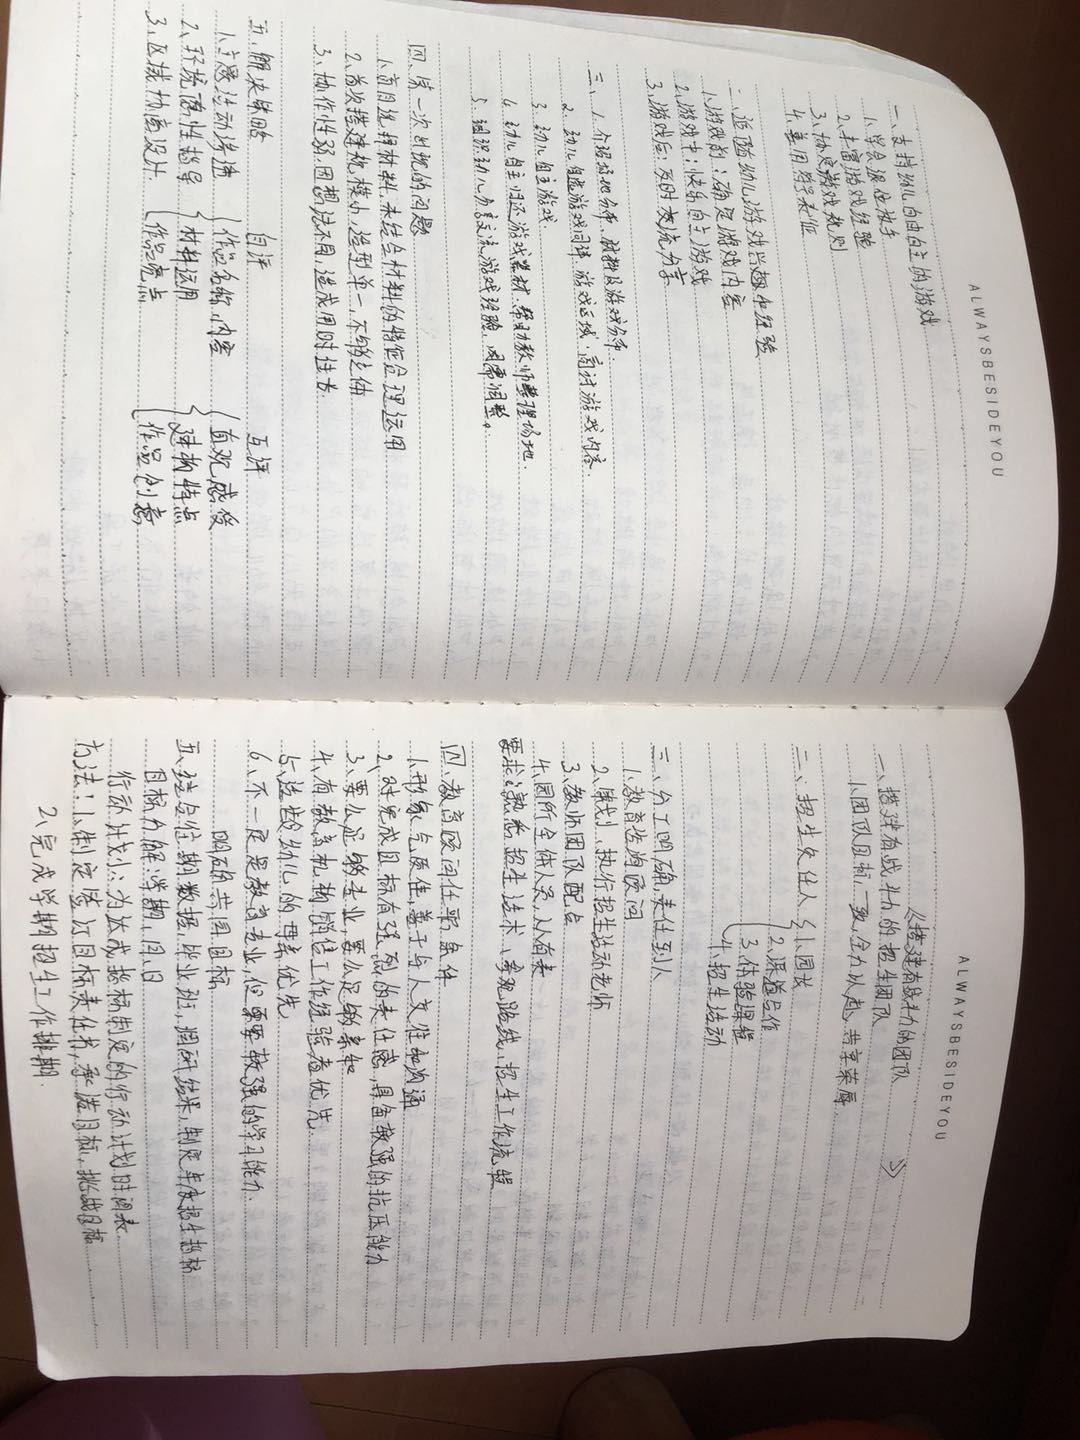 ALWAYSBESIDEYOU
一、支持幼儿自由自主的游戏
1.学会退位放手
2.丰富游戏经验
3.协定游戏规则
4.善用
二、追随幼儿游戏兴趣和经验
1.游戏前:确定游戏内容
2.游戏中:快乐自主游戏
3.游戏后:及时交流分享
三、1.介绍场地分布、材料及游戏分布.
2.幼儿自选游戏同伴、游戏区域,商讨游戏内容.
3.幼儿自主游戏.
4.幼儿自主归还游戏器材,帮助教师整理场地.
5.组织幼儿分享交流游戏经验,因需调整。
四、第一次出现的问题
1.盲目选择材料,未结合材料的特征合理运用
2.首次搭建规模小,造型单一,不够立体
3.协作性弱,因想法不同,造成用时过长.
五、解决策略 自评 互评
1.主题活动渗透 {作品名称、内容 {直观感受
2.环境 性指导 {材料运用 {建构特点
3.区域协商设计 {作品亮点 {作品创意
ALWAYSBESIDEYOU
《搭建有战斗力的团队》
一、搭建有战斗力的招生团队
1.团队目标一致,全力以赴,共享荣辱
二、招生负责人 {1.园长
2.渠道合作
3.体验课程
4.招生活动
三、分工明确,责任到人
1.教育咨询顾问
2.策划、执行招生活动老师
3.教师团队配合
4.园所全体人员,人人有责
要求:熟悉招生话术、参观路线、招生工作流程
四、教育顾问任职条件
1.形象气质佳,善于与人交往和沟通
2.对完成目标有强烈的责任感,具备较强的抗压能力
3.要么足够专业,要么足够亲和
4.有教育机构销售工作经验者优先.
5.适龄幼儿的母亲优先
6.不一定是教育专业,但要有较强的学习能力.
明确共同目标
五、结合往期数据,毕业班,调研结果,制定年度招生指标
目标分解:学期,月,日
行动计划:为达成指标制定的行动计划时间表
方法:1.制定签订目标责任书,承诺目标,挑战目标
2.完成学期招生工作排期